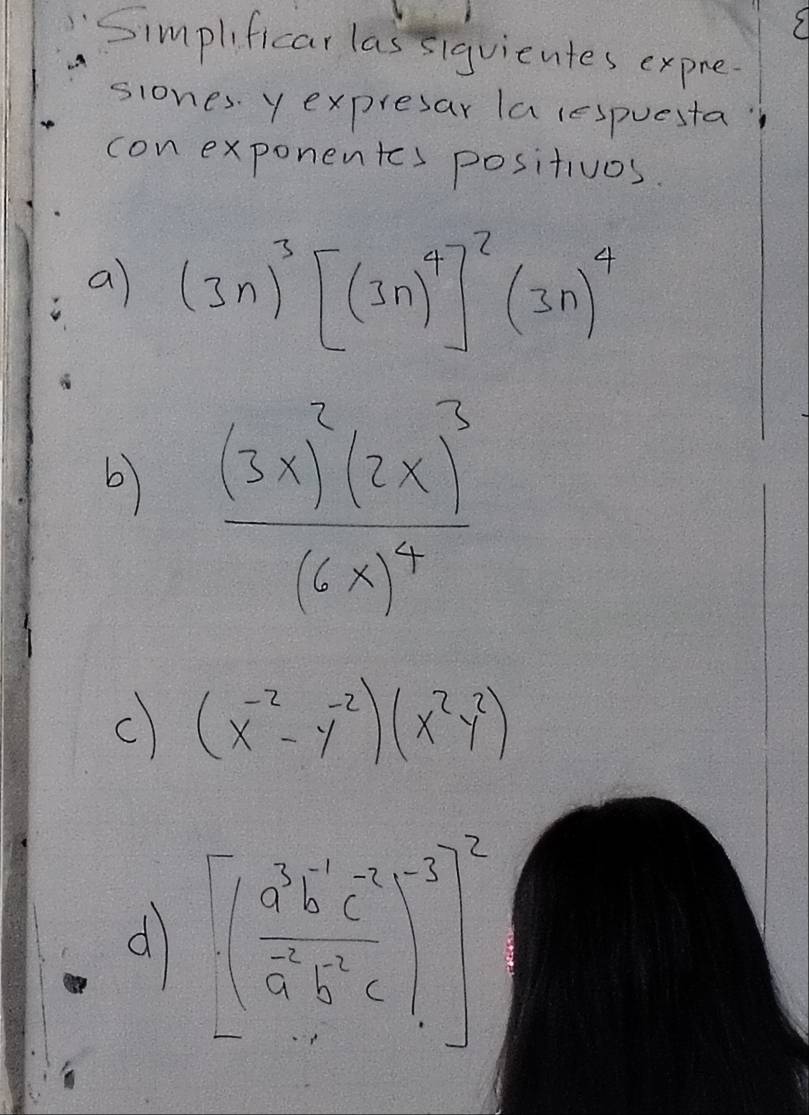 Simplificar las siguientes expre-
siones y expresar la respuesta
con exponentes positivos.
a) (3n)³ [(3n)⁴]² (3n)⁴
b) (3x)² (2x)³
(6x)⁴
c) (x⁻² - y⁻²)(x² y²)
d) [(a³ b⁻¹ c⁻²
a⁻² b⁻² c)⁻³]²